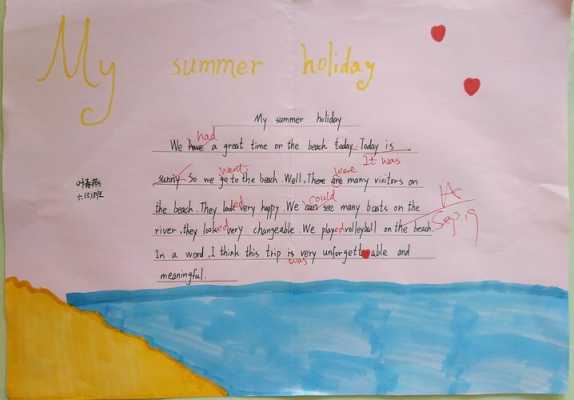 My summer holiday
My summer holiday
had
We have a great time on the beach today. Today is
It was
sunny. So we went go to the beach. Well, There were are many visitors on
the beach. They looked very happy. We could can see many boats on the
river. they looked very changeable. We played volleyball on the beach.
In a word, I think this trip is very unforgettable and
was
meaningful.
A
Sep.19